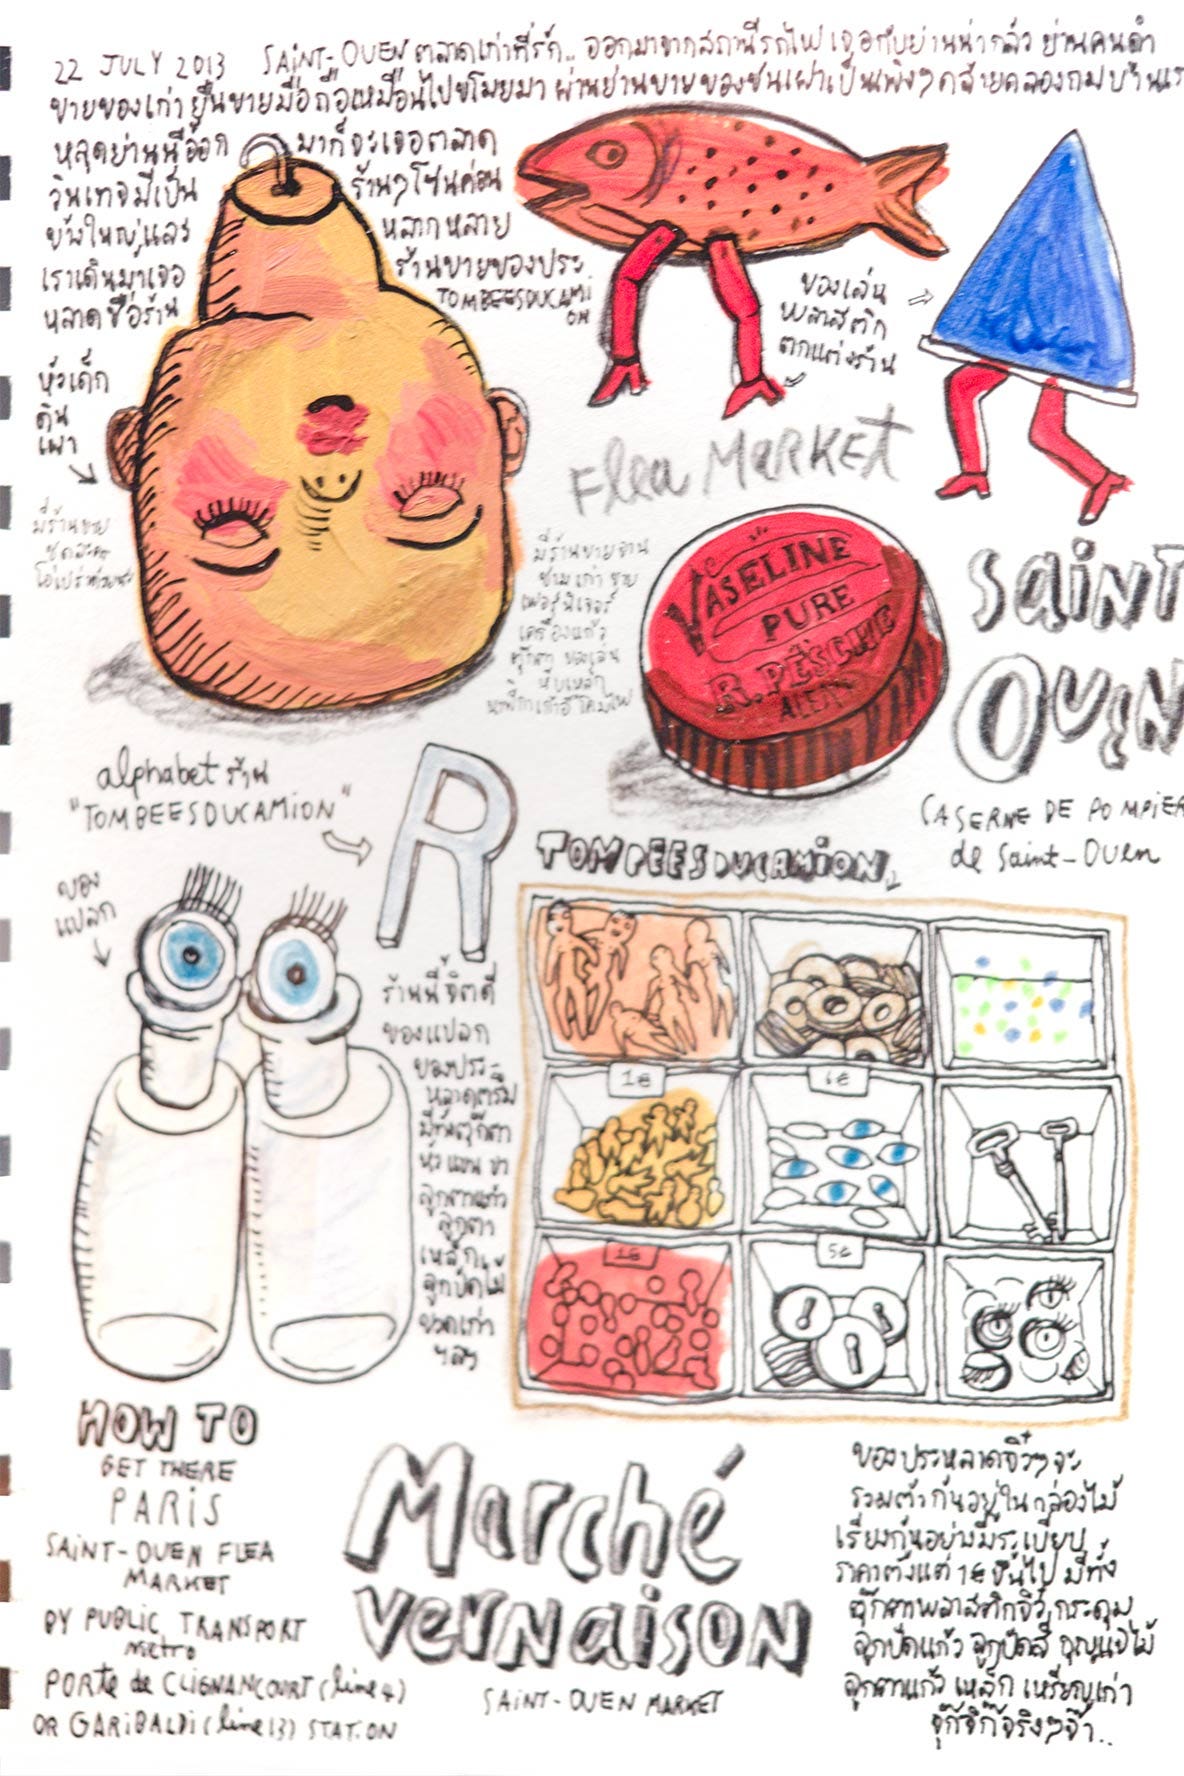 22 JULY 2013 SAINT-OUEN ตลาดเก่าที่รัก.. ออกมาจากสถานีรถไฟ เจอกับย่านน่ากลัว ย่านคนดำ
ขายของเก่า ยืนขายมือถือเหมือนไปขโมยมา ผ่านย่านขายของชนเผ่าเป็นเพิงๆ คล้ายคลองถมบ้านเรา
หลุดย่านนี้ออก มาก็จะเจอตลาด
วินเทจมีเป็น ร้านๆ โซนค่อน
ข้างใหญ่และ หลากหลาย
เราเดินมาเจอ ร้านขายของประ
หลาดชื่อร้าน TOMBEESDUCAMI
ON
หัวเด็ก
ดิน
เผา
ของเล่น
พลาสติก
ตกแต่งร้าน
FLEA MARKET
มีร้านขาย
ชุดละคร
มีร้านขายจาน
ชามเก่า ขาย
เฟอร์นิเจอร์
เครื่องแก้ว
ตุ๊กตา ของเล่น
หีบเหล็ก
VASELINE
PURE
R. PESCHE
SAINT
OUEN
CASERNE DE POMPIER
de Saint-Ouen
alphabet ร้าน
"TOMBEESDUCAMION"
R
ของ
แปลก
TOMBEESDUCAMION
ร้านนี้จิตดี
ของแปลก
ของประ
หลาดตรึม
มีทั้งตุ๊กตา
หัว แขน ขา
ลูกตาแก้ว
ลูกตา
เหล็ก
ลูกปัดไม้
ขวดเก่า
ฯลฯ
1€
6€
1€
5€
HOW TO
GET THERE
PARIS
SAINT-OUEN FLEA
MARKET
BY PUBLIC TRANSPORT
METRO
PORTE de CLIGNANCOURT (line 4)
OR GARIBALDI (line 13) STATION
Marché
VERNAISON
SAINT-OUEN MARKET
ของประหลาดจิ๋วๆ จะ
รวมตัวกันอยู่ในกล่องไม้
เรียงกันอย่างมีระเบียบ
ราคาตั้งแต่ 1€ ขึ้นไป มีทั้ง
ตุ๊กตาพลาสติกจิ๋ว กระดุม
ลูกปัดแก้ว ลูกปัดสี กุญแจไม้
ลูกตาแก้ว เหล็ก เหรียญเก่า
จุ๊กจิ๊กจริงๆ จ้า..